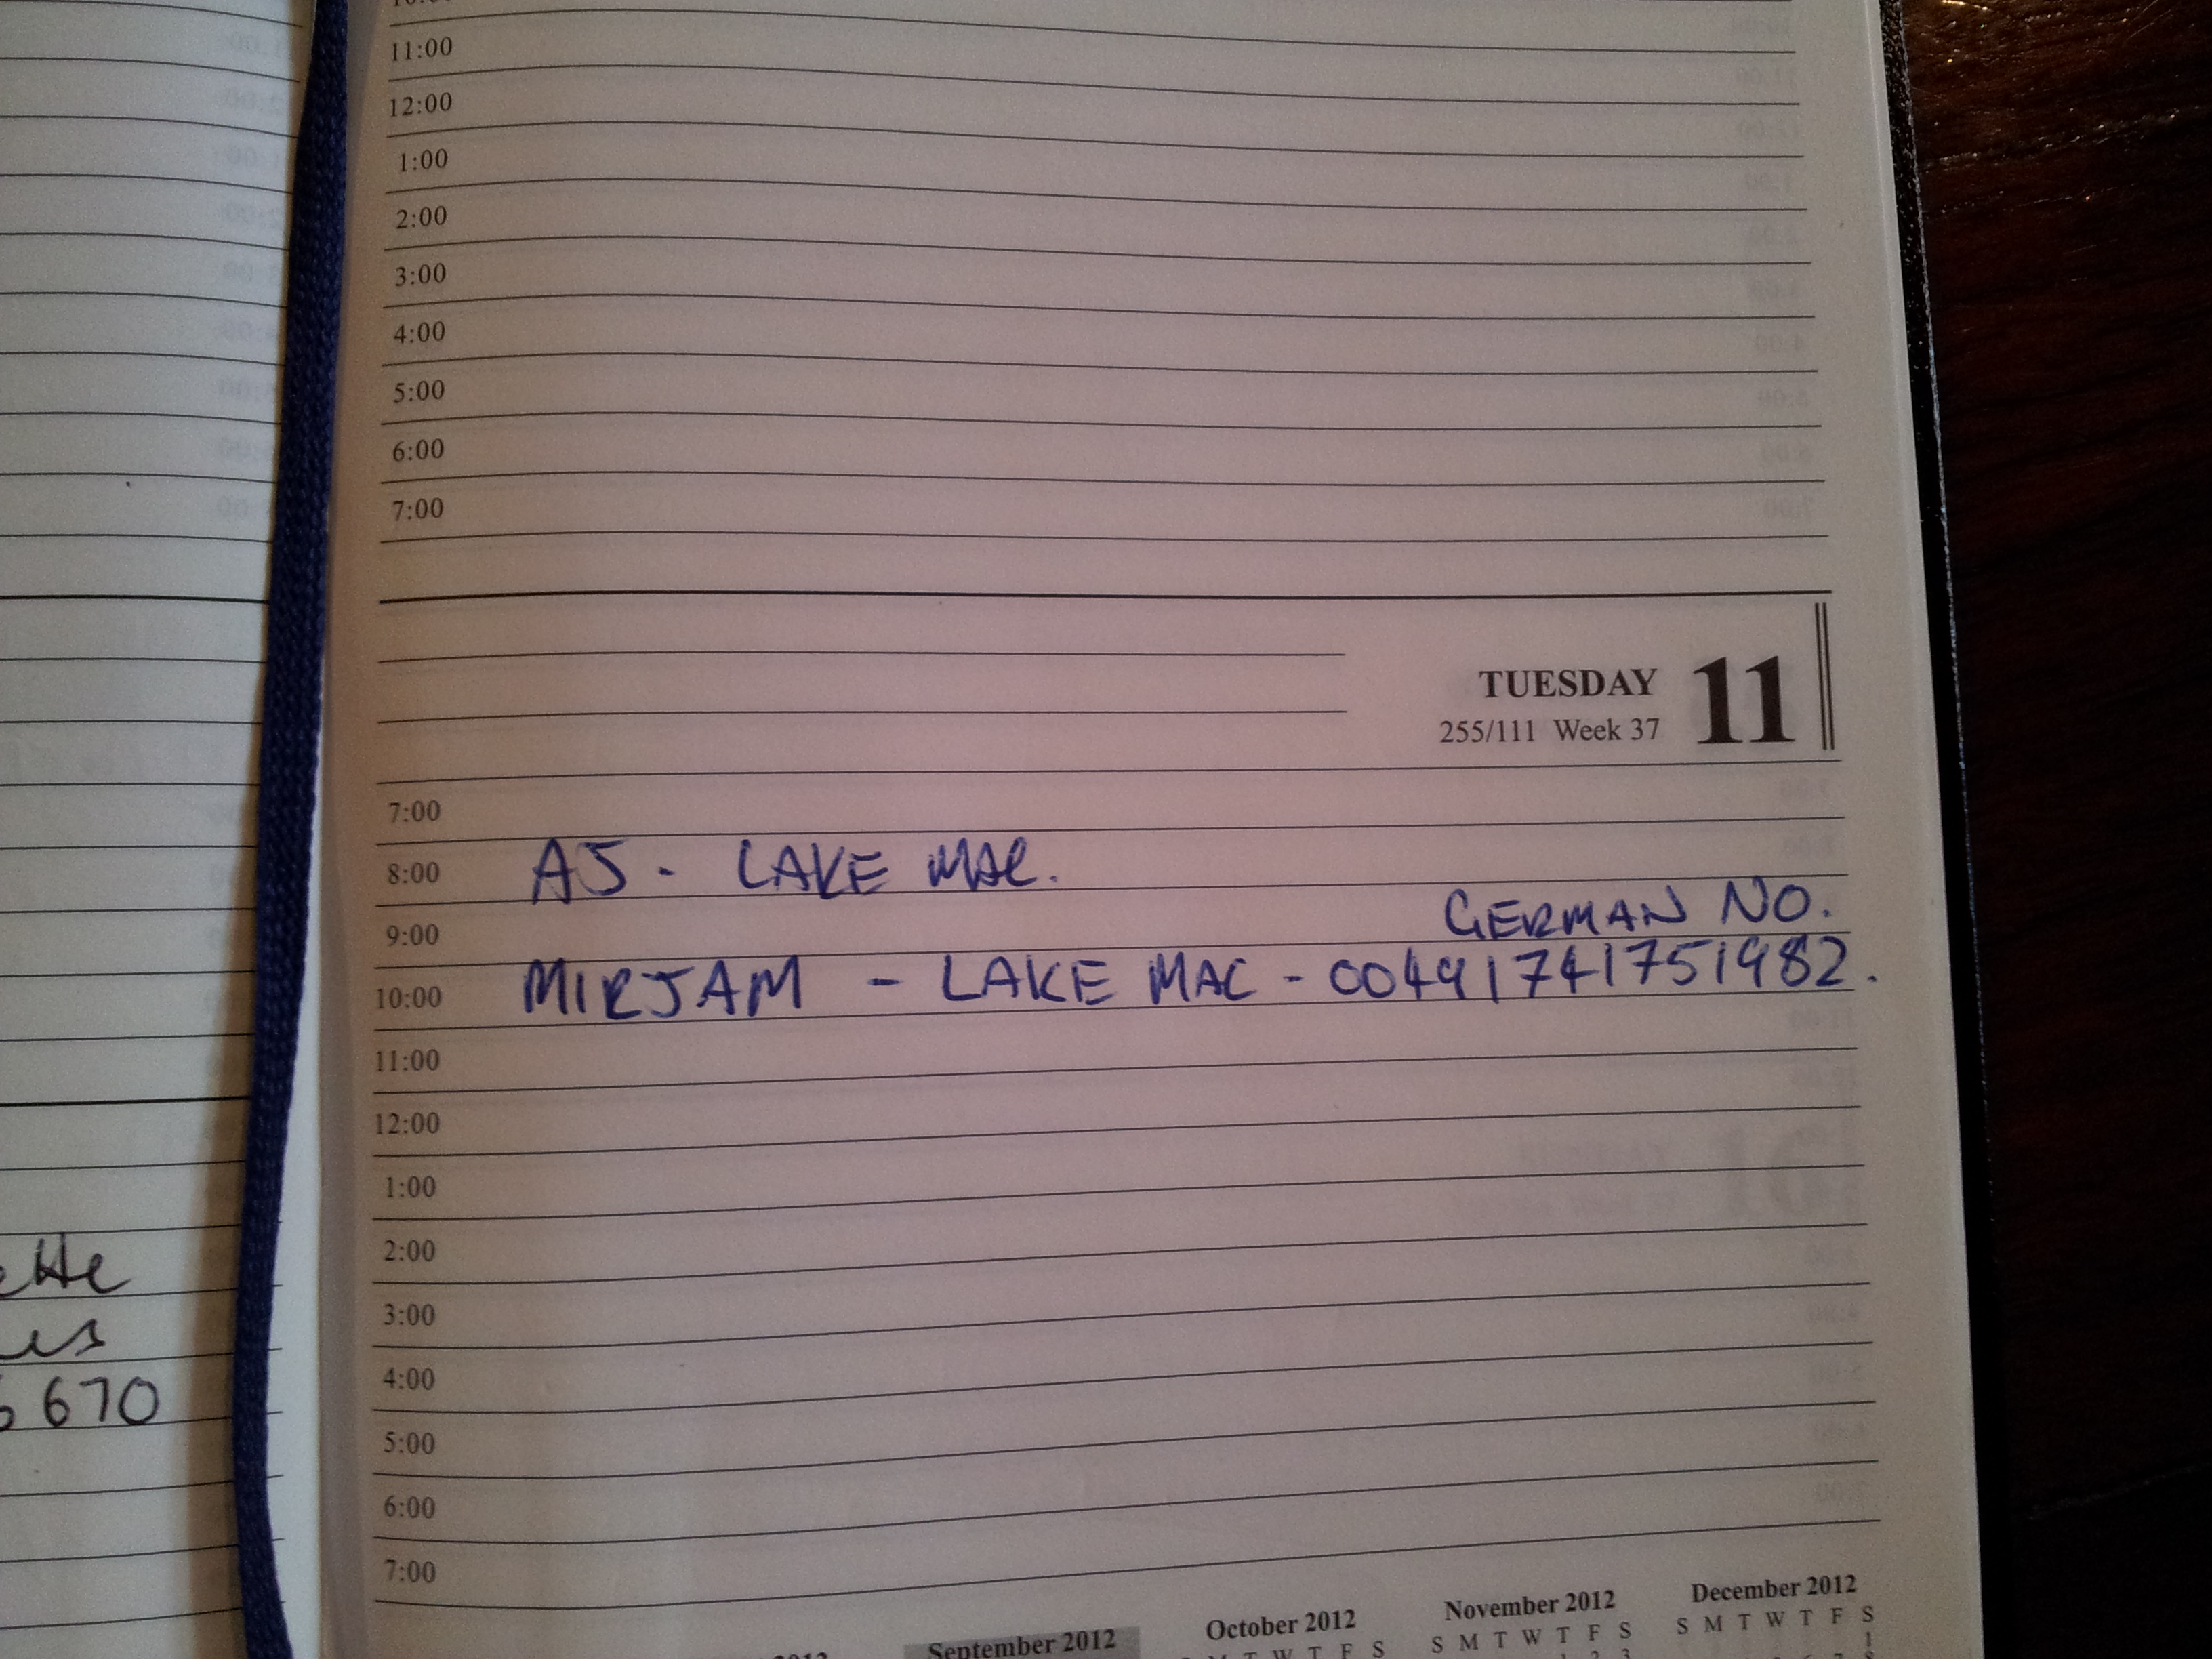 11:00
12:00
1:00
2:00
3:00
4:00
5:00
6:00
7:00
TUESDAY 11
255/111 Week 37
7:00
8:00 AJ - LAKE MAC.
9:00 GERMAN NO.
10:00 MIRJAM - LAKE MAC - 00491741751982.
11:00
12:00
1:00
2:00
3:00
4:00
5:00
6:00
7:00
September 2012 October 2012 November 2012 December 2012
M T W T F S S M T W T F S S M T W T F S
1 2 3 1
670